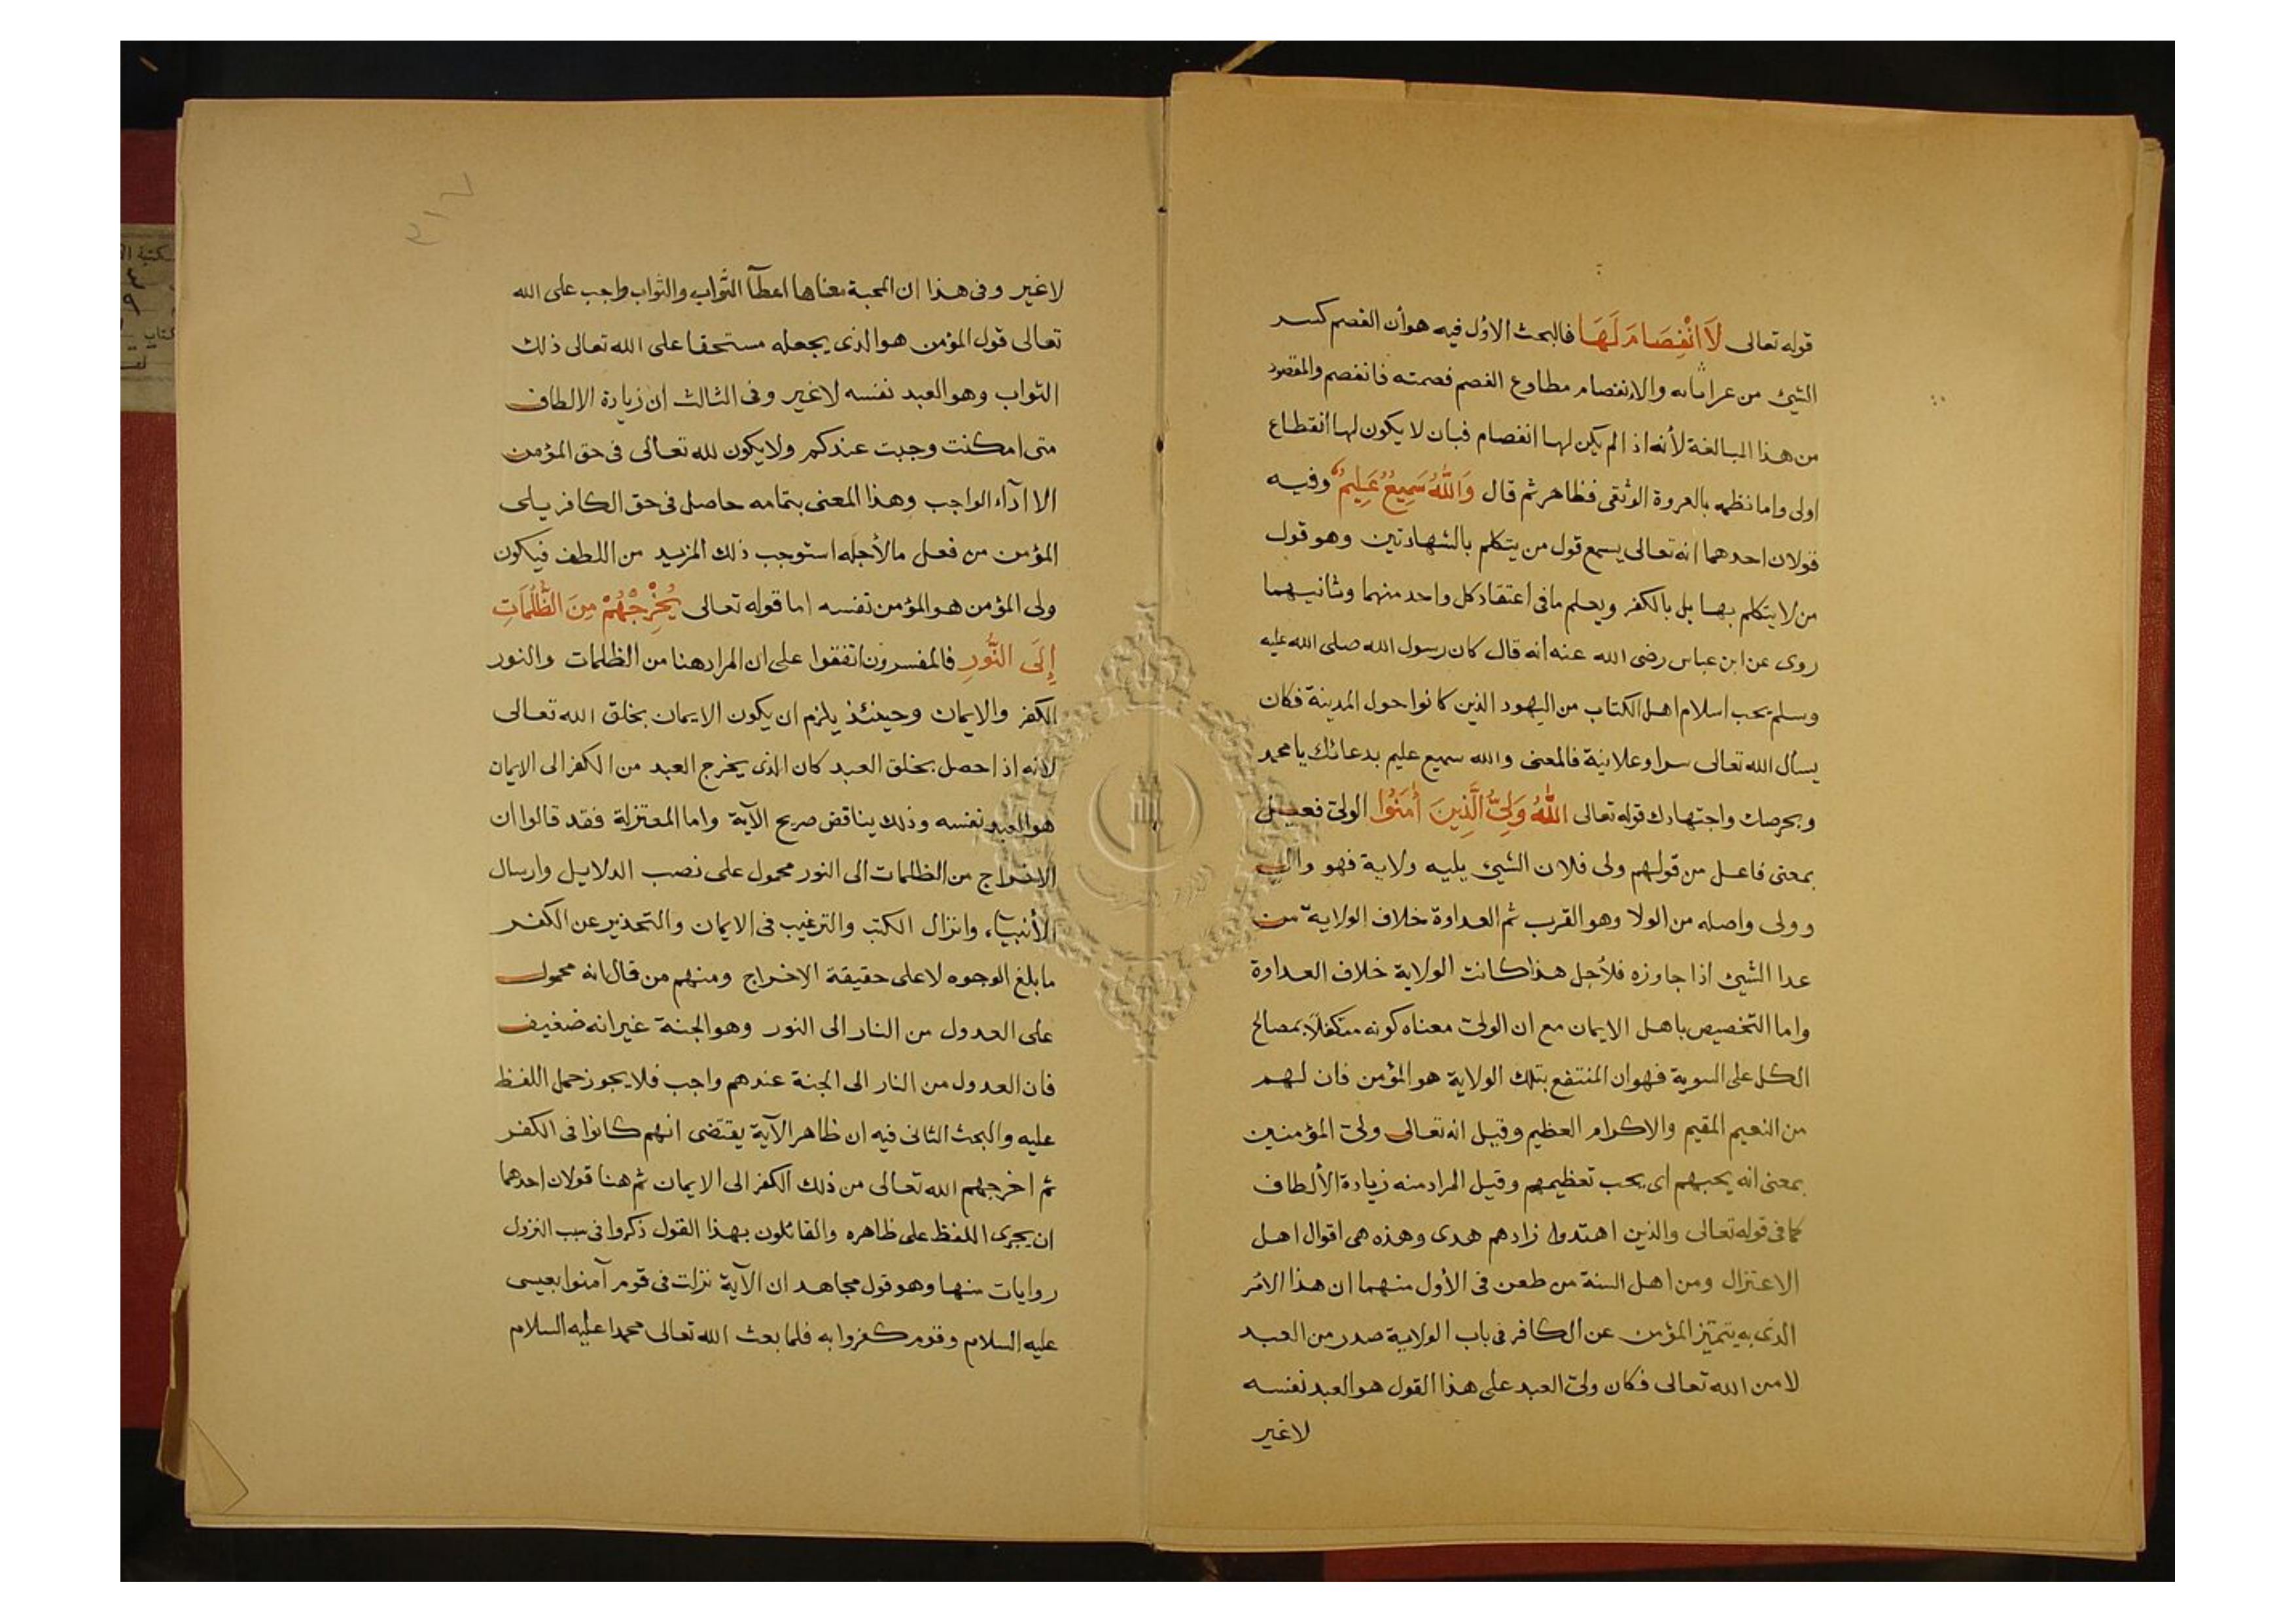 قوله تعالى لَا انْفِصَامَ لَهَا فالبحث الاوّل فيه هو أن الفصم كسر
الشيئ من غير ابانه والانفصام مطاوع الفصم فصمته فانفصم والمقصود
من هذا المبالغة لأنه اذا لم يكن لها انفصام فبان لا يكون لها انقطاع
اولى واما نظمه بالعروة الوثقى فظاهر ثم قال وَاللَّهُ سَمِيعٌ عَلِيمٌ وفيه
قولان احدهما انه تعالى يسمع قول من يتكلم بالشهادتين وهو قول
من لا يتكلم بها بل بالكفر ويعلم ما فى اعتقاد كل واحد منهما وثانيهما
روى عن ابن عباس رضى الله عنه انه قال كان رسول الله صلى الله عليه
وسلم يحب اسلام اهل الكتاب من اليهود الذين كانوا حول المدينة فكان
يسأل الله تعالى سرا وعلانية فالمعنى والله سميع عليم بدعائك يا محمد
وبحرصك واجتهادك قوله تعالى اللَّهُ وَلِيُّ الَّذِينَ أَمَنُوا الولىّ فعيل
بمعنى فاعل من قولهم ولى فلان الشيئ يليه ولاية فهو والى
وولى واصله من الولا وهو القرب ثم العداوة خلاف الولاية من
عدا الشيئ اذا جاوزه فلأجل هذا كانت الولاية خلاف العداوة
واما التخصيص باهل الايمان مع ان الولىّ معناه كونه متكفلاً بمصالح
الكل على السوية فهو ان المنتفع بتلك الولاية هو المؤمن فان لهم
من النعيم المقيم والاكرام العظيم وقيل انه تعالى ولىّ المؤمنين
بمعنى انه يحبهم اى يحب تعظيمهم وقيل المراد منه زيادة الألطاف
كما فى قوله تعالى والذين اهتدوا زادهم هدى وهذه هى اقوال اهل
الاعتزال ومن اهل السنة من طعن فى الأول منهما ان هذا الامر
الذى به يتميز المؤمن عن الكافر فى باب الولاية صدر من العبد
لا من الله تعالى فكان ولىّ العبد على هذا القول هو العبد نفسه
لا غير
لا غير وفى هذا ان المحبة معناها اعطآ الثواب والثواب واجب على الله
تعالى قول المؤمن هو الذى يجعله مستحقا على الله تعالى ذلك
الثواب وهو العبد نفسه لا غير وفى الثالث ان زيادة الالطاف
متى امكنت وجبت عندكم ولا يكون لله تعالى فى حق المؤمن
الا ادآء الواجب وهذا المعنى بتمامه حاصل فى حق الكافر بلى
المؤمن من فعل ما لأجله استوجب ذلك المزيد من اللطف فيكون
ولى المؤمن هو المؤمن نفسه اما قوله تعالى يُخْرِجُهُمْ مِنَ الظُّلُمَاتِ
إِلَى النُّورِ فالمفسرون اتفقوا على ان المراد هنا من الظلمات والنور
الكفر والايمان وحينئذ يلزم ان يكون الايمان بخلق الله تعالى
لانه اذا حصل بخلق العبد كان الذى يخرج العبد من الكفر الى الايمان
هو العبد نفسه وذلك يناقض صريح الآية واما المعتزلة فقد قالوا ان
الاخراج من الظلمات الى النور محمول على نصب الدلايل وارسال
الأنبيآء وانزال الكتب والترغيب فى الايمان والتحذير عن الكفر
ما بلغ الوجوه لا على حقيقة الاخراج ومنهم من قال انه محمول
على العدول من النار الى النور وهو الجنة غير انه ضعيف
فان العدول من النار الى الجنة عندهم واجب فلا يجوز حمل اللفظ
عليه والبحث الثانى فيه ان ظاهر الآية يقتضى انهم كانوا فى الكفر
ثم اخرجهم الله تعالى من ذلك الكفر الى الايمان ثم هنا قولان احدهما
ان يجرى اللفظ على ظاهره والقائلون بهذا القول ذكروا فى سبب النزول
روايات منها وهو قول مجاهد ان الآية نزلت فى قوم آمنوا بعيسى
عليه السلام وقوم كفروا به فلما بعث الله تعالى محمدا عليه السلام